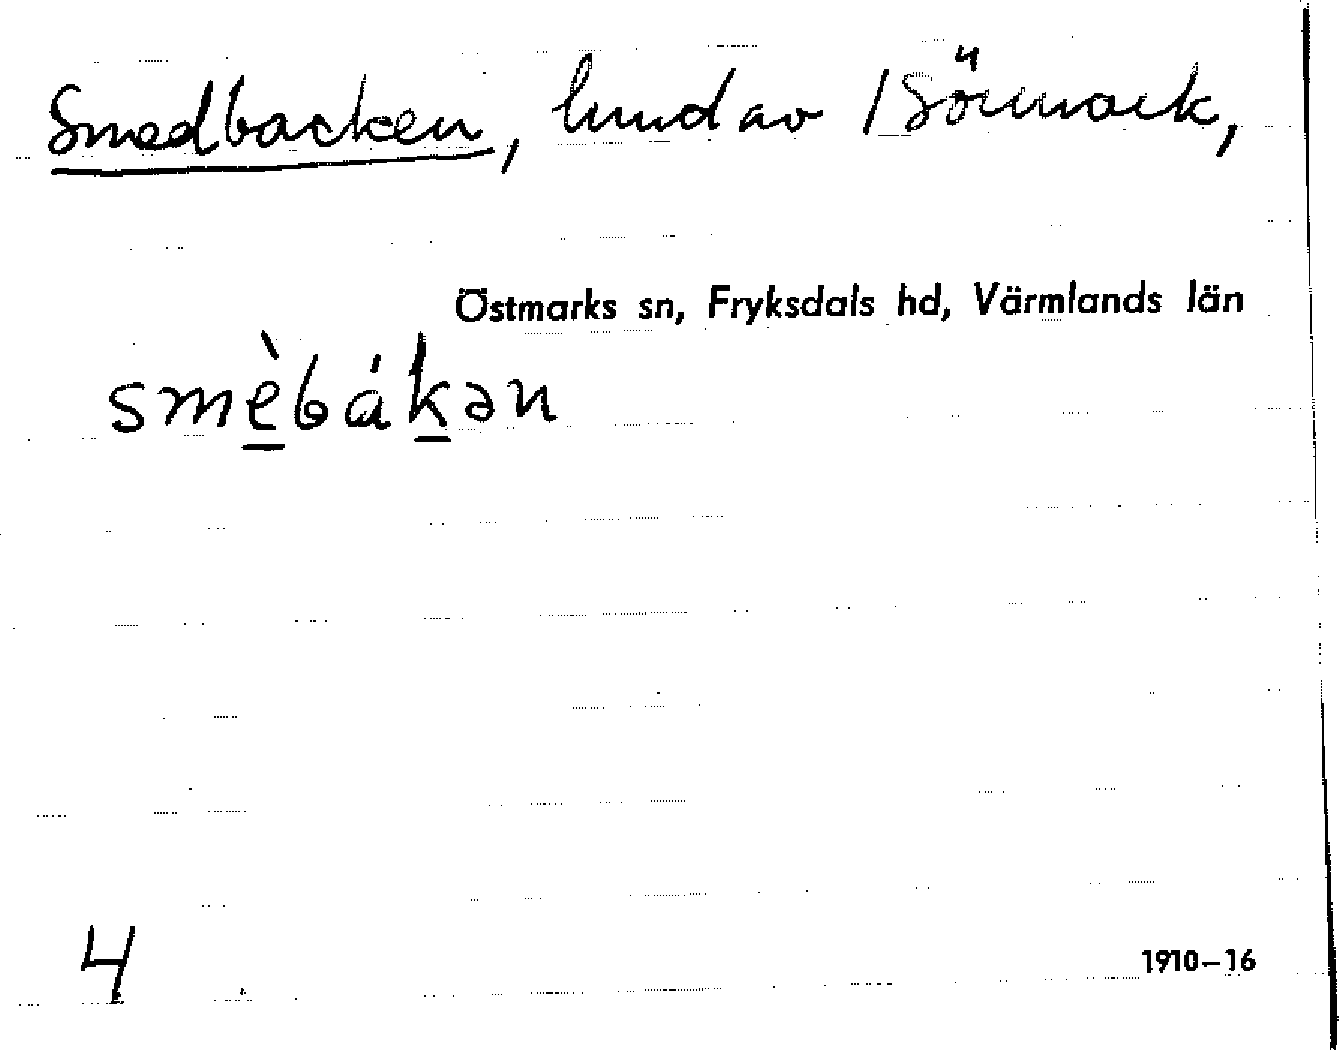 Smedbacken, hmd av 1 Sörmark,
4
Östmarks sn, Fryksdals hd, Värmlands län
smèbákən
4
1910–16